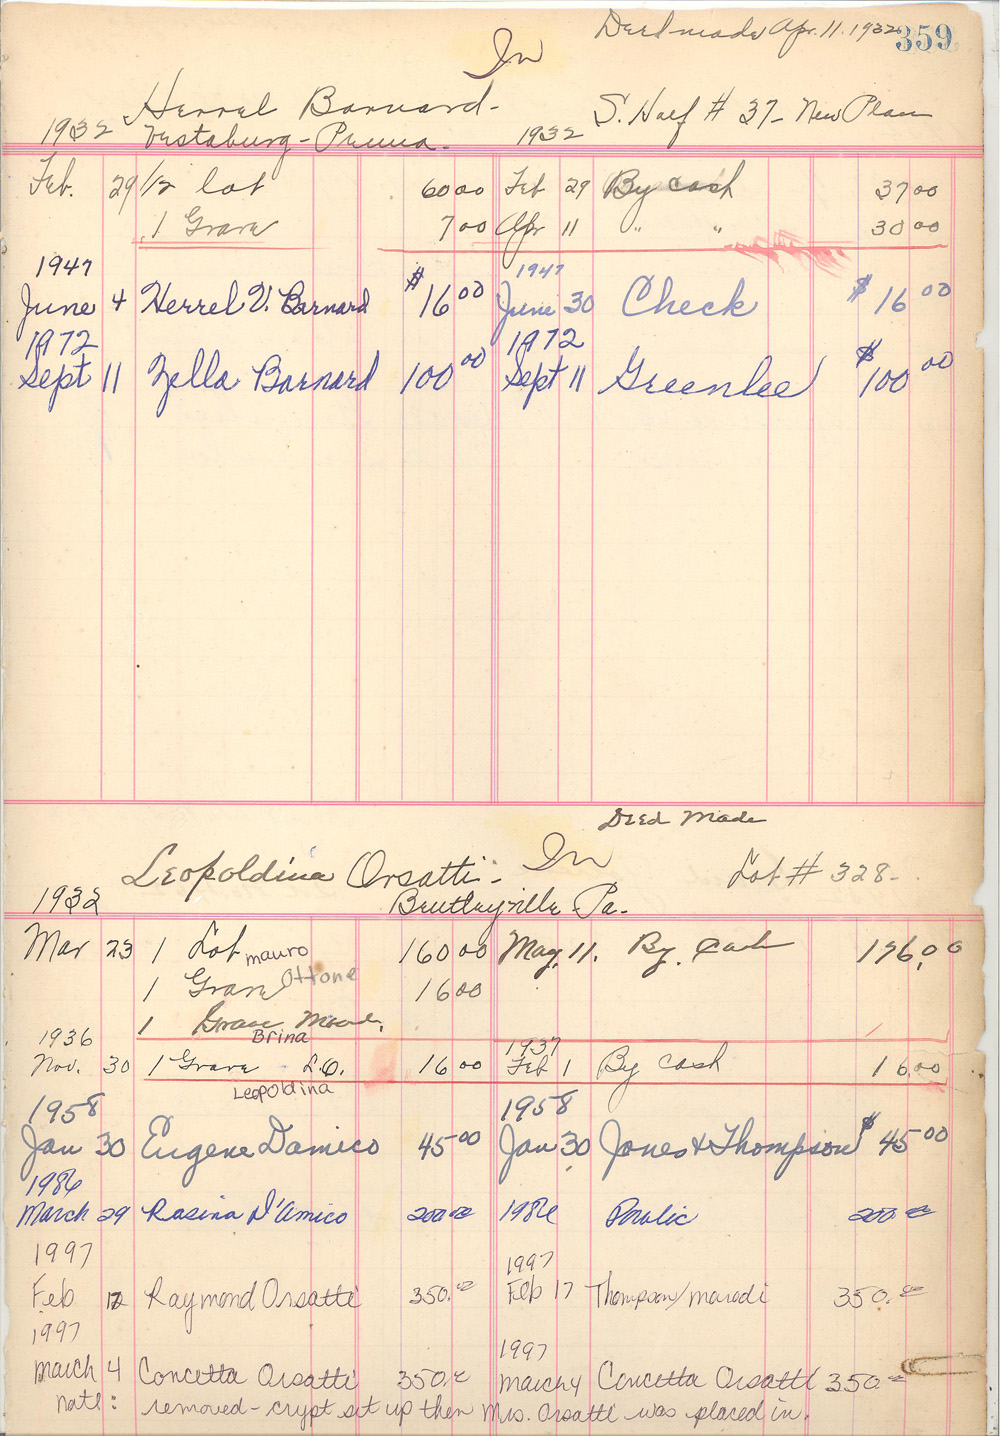 Deed made Apr. 11. 1932 359
In
Herrel Barnard - S. Half # 37 - New Plan
1932 Vestaburg - Penna. 1932
Feb. 29 1/2 lot 60 00 Feb 29 By cash 37 00
1 Grave 7 00 Apr 11 " " 30 00
1947 1947
June 4 Herrel V. Barnard $16 00 June 30 Check $16 00
1972 1972
Sept 11 Zella Barnard 100 00 Sept 11 Greenlee $100 00
Deed Made
In
Leopoldina Orsatti - Lot # 328 -
1932 Bentleyville Pa.
Mar 23 1 Lot mauro 160 00 May, 11. By. Cash 176.00
1 Grave Ottone 16 00
1 Grave
1936 Brina 1937
Nov. 30 1 Grave L.O. 16 00 Feb 1 By cash 16.00
Leopoldina
1958 1958
Jan 30 Eugene Damico 45 00 Jan 30 Jones & Thompson $45 00
1986
March 29 Rasina D'Amico 200 00 1986 200.00
1997 1997
Feb 17 Raymond Orsatti 350.00 Feb 17 Thompson/marodi 350.00
1997 1997
March 4 Concetta Orsatti 350.00 March 4 Concetta Orsatti 350.00
note: removed - crypt set up then Mrs. Orsatti was placed in.